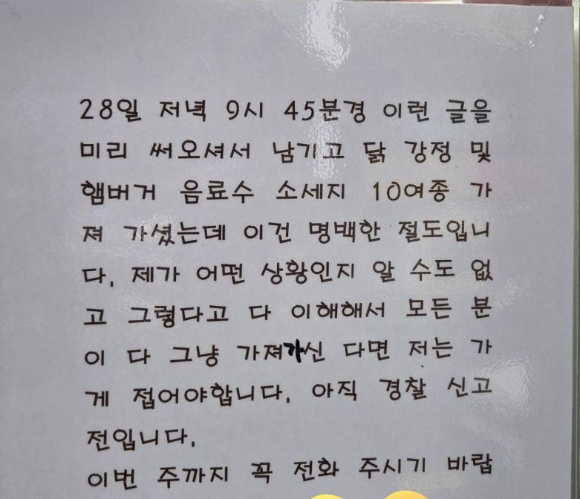 28일 저녁 9시 45분경 이런 글을
미리 써오셔서 남기고 닭 강정 및
햄버거 음료수 소세지 10여종 가
져 가셨는데 이건 명백한 절도입니
다. 제가 어떤 상황인지 알 수도 없
고 그렇다고 다 이해해서 모든 분
이 다 그냥 가져가신 다면 저는 가
게 접어야합니다. 아직 경찰 신고
전입니다.
이번 주까지 꼭 전화 주시기 바랍